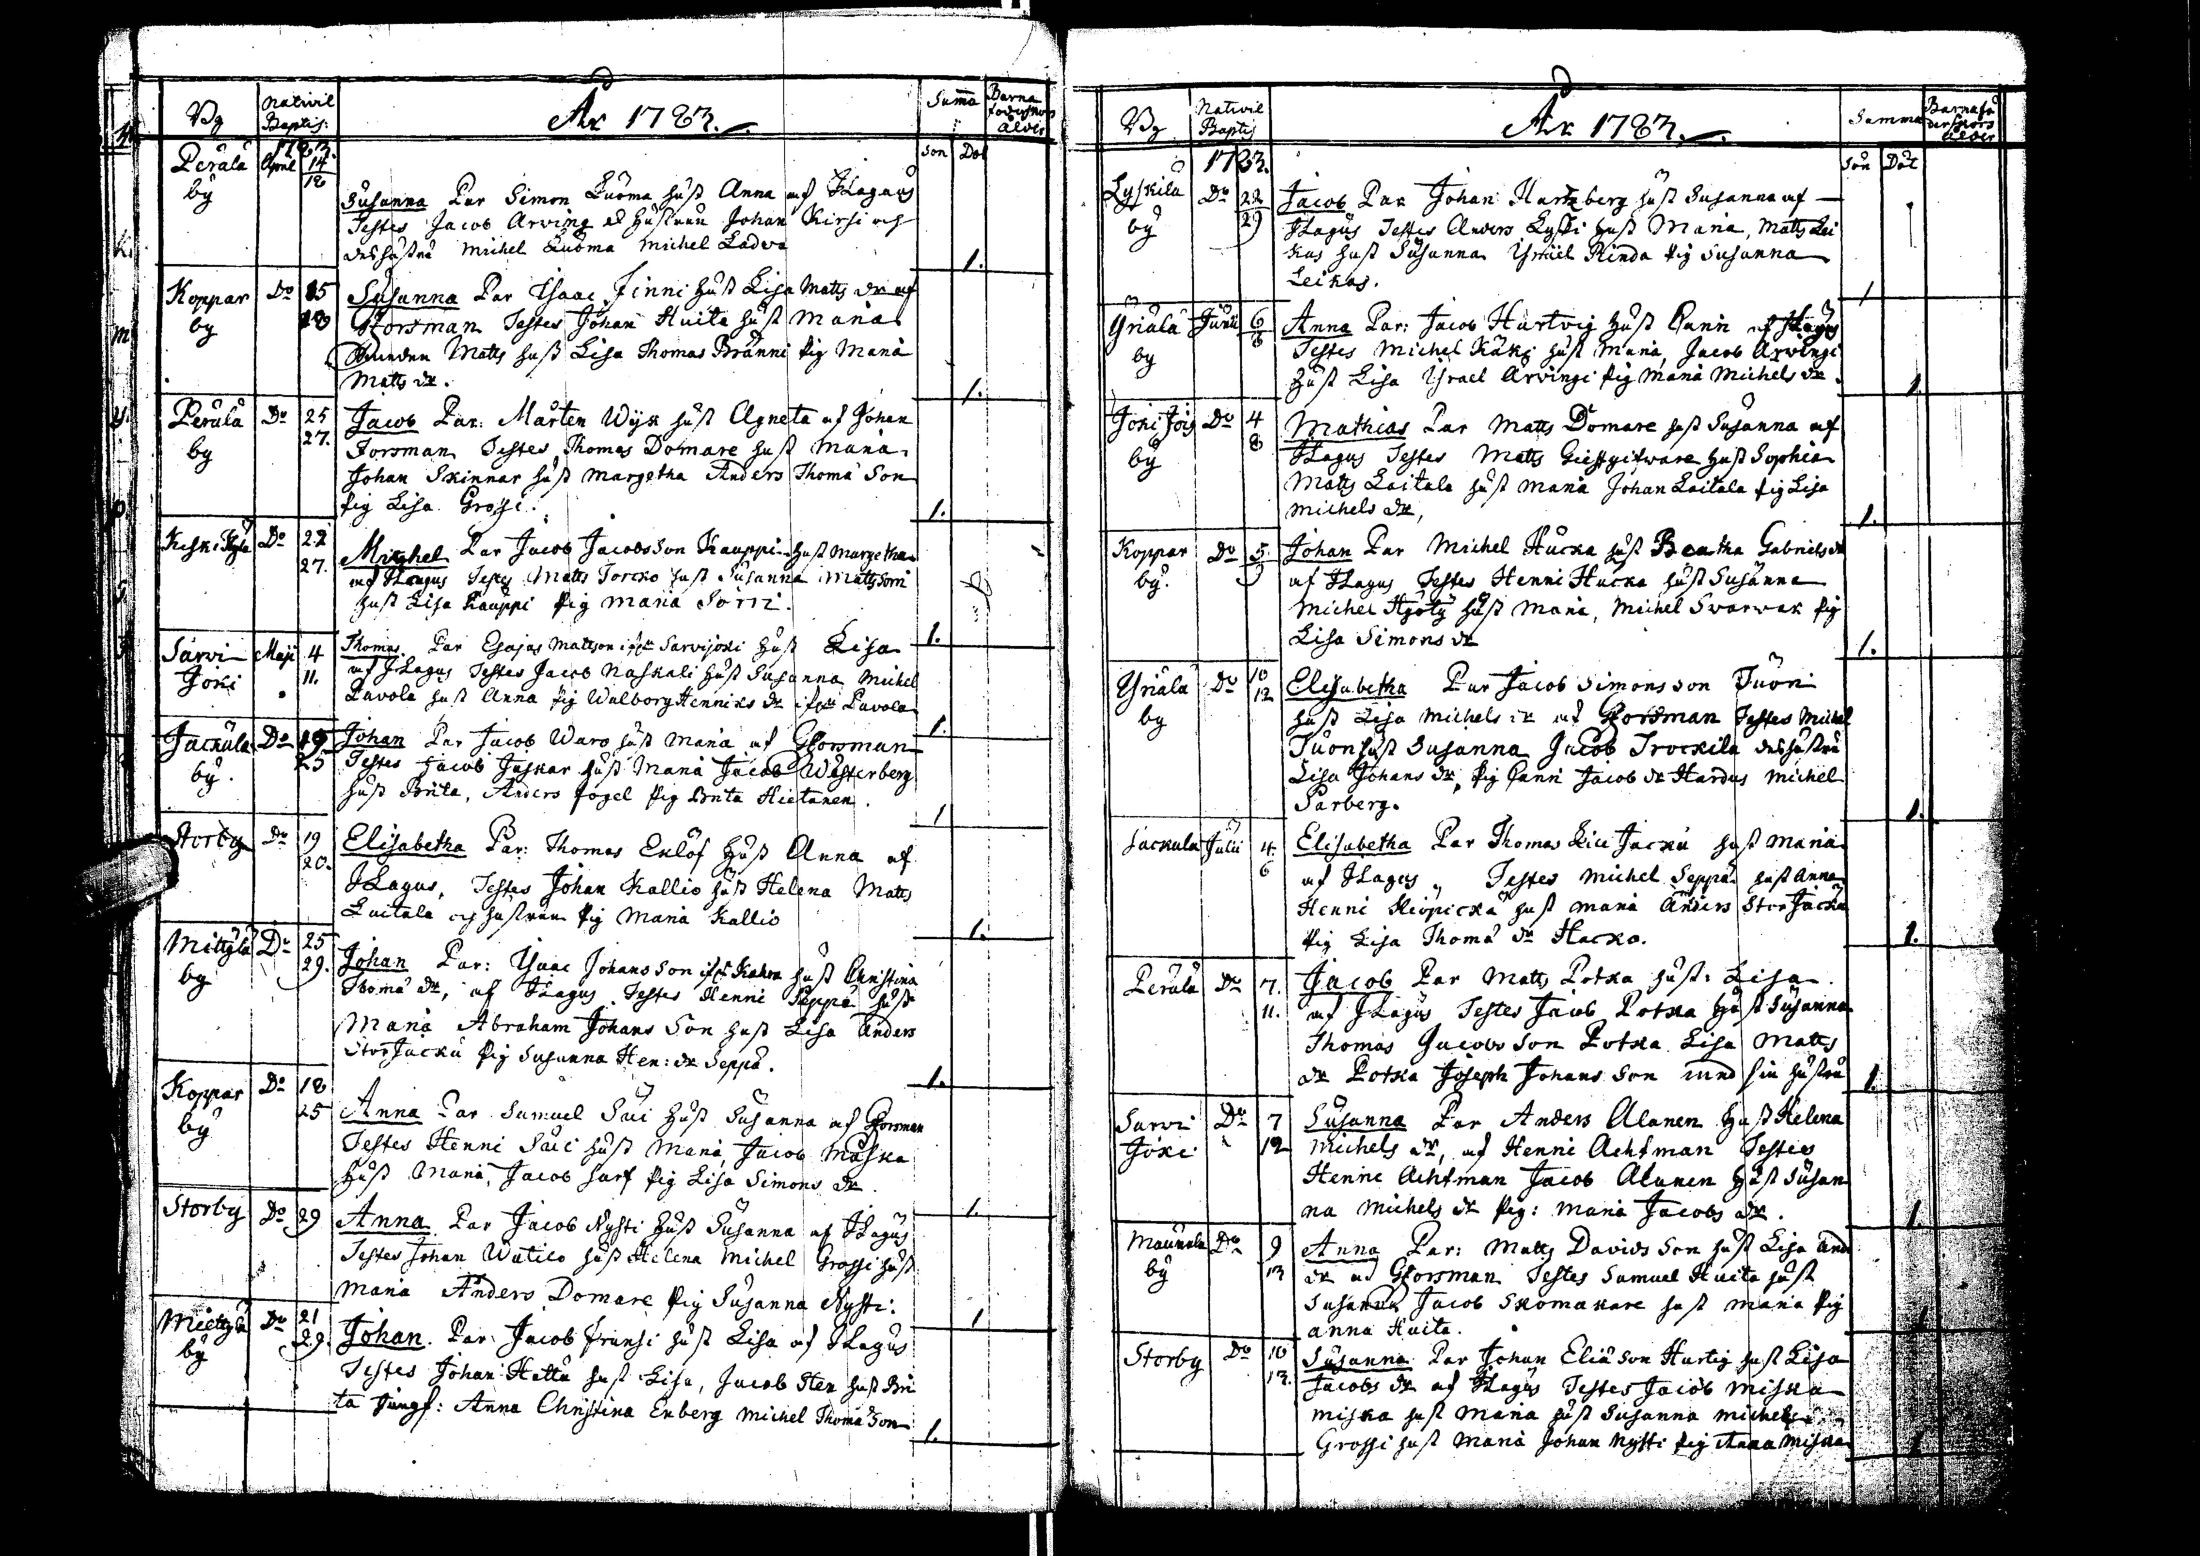 By
Nativit
Baptis:
År 1783.
Summa
Barna
föderskors
ålder
Son
Dot
Perälä
by
1783.
April 14
18
Susanna Par Simon Luoma hust Anna af JLagus
Testes Jacob Arving och hustrun Johan Kirsi och
des hustru Michel Luoma Michel Ladva
1.
Koppar
by
Do 15
18
Susanna Par Isaac Finni hust Lisa Matts dr af
GForsman Testes Johan Huita hust Maria
Matts hust Lisa Thomas Bränni pig Maria
Matts dr.
1.
Perälä
by
Do 25
27.
Jacob Par: Mårten Wijk hust Agneta af Johan
Forsman Testes Thomas Domare hust Maria
Johan Skinnar hust Margetha Anders Thomä Son
pig Lisa Grossi.
1.
Keski Kylä
Do 22
27.
Michel Par Jacob Jacobsson Kauppi hust Margetha
af JLagus Testes Matts Torcko hust Susanna Matts Sorri
hust Lisa Kauppi pig Maria Sorri.
1.
Sarvi
Joki
Maji 4
11.
Thomas. Par Esajas Mattson Sarvijoki hust Lisa
af JLagus Testes Jacob Naskali hust Susanna Michel
Pavola hust Anna pig Walborg Henriks dr Pavola
1.
Jackula
by.
Do 19
25
Johan Par Jacob Waro hust Maria af GForsman
Testes Jacob Jaskar hust Maria Jacob Wästerberg
hust Brita, Anders Fogel pig Brita Hietanen.
1
Storby
Do 19
20.
Elisabetha Par: Thomas Eklöf hust Anna af
JLagus, Testes Johan Kallio hust Helena Matts
Laitala och hustrun pig Maria Kallio
1.
Mittylä
by
Do 25
29.
Johan Par: Isaac Johans Son Kahra hust Christina
Thomä dr, af JLagus Testes Henric Seppä hust
Maria Abraham Johans Son hust Lisa Anders
StorJacku pig Susanna Hen: dr Seppä.
1.
Koppar
by
Do 18
25
Anna Par Samuel Sui hust Susanna af GForsman
Testes Henric Sui hust Maria, Jacob Maska
hust Maria, Jacob Sarf pig Lisa Simons dr.
1.
Storby
Do 29
Anna. Par Jacob Nysti hust Susanna af JLagus
Testes Johan Watilo hust Helena Michel Grossi hust
Maria Anders Domare pig Susanna Nysti.
1
Miettylä
by
Do 21
29.
Johan. Par: Jacob Fransi hust Lisa af JLagus
Testes Johan Hattu hust Lisa, Jacob Sten hust Bri
ta Jungf: Anna Christina Enberg Michel Thomä Son
1.
By
Nativit
Baptis
År 1783.
Summa
Barnafö
derskors
ålder
Son
Dot
1783.
Lyskilä
by
Do 22
29
Jacob Par Johan Hartzberg hust Susanna af
JLagus Testes Anders Lyski hust Maria, Matts Lei
kas hust Susanna Ishraël Rinda pig Susanna
Leikas.
1
Yriälä
by
Junii 6
8
Anna Par: Jacob Hartvig hust Carin af JLagus
Testes Michel Käki hust Maria, Jacob Arvingi
hust Lisa Israel Arvingi pig Maria Michels dr.
1.
Joki Jois
by
Do 4
8
Mathias Par Matts Domare hust Susanna af
JLagus Testes Matts Giestgifware hust Sophia
Matts Laitala hust Maria Johan Laitala pig Lisa
Michels dr,
1.
Koppar
by.
Do 5
9
Johan Par Michel Hucka hust Beatha Gabriels dr
af JLagus Testes Henric Hucka hust Susanna
Michel Hyöty hust Maria, Michel Svarvar pig
Lisa Simons dr
1.
Yriälä
by
Do 10
12
Elisabetha Par Jacob Simons son Tuori
hust Lisa Michels dr af GForsman Testes Michel
Tuori hust Susanna Jacob Trockila des hustru
Lisa Johans dr, pig Carin Jacob dr Hardus Michel
Parberg.
1.
Jackula
Julii 4
6
Elisabetha Par Thomas Lill Jacku hust Maria
af JLagus Testes Michel Seppä hust Anna
Henric hust Maria Anders Stor Jacku
pig Lisa Thomä dr Hacko.
1.
Perälä
Do 7.
11.
Jacob Par Matts Potka hust: Lisa
af JLagus Testes Jacob Potka hust Susanna
Thomas Jacobs Son Potka Lisa Matts
dr Potka Joseph Johans Son med sin hustru
1.
Sarvi
Joki
Do 7
12
Susanna Par Anders Alanen hust Helena
Michels dr, af Henric Achtman Testes
Henric Achtman Jacob Alanen hust Susan
na Michels dr pig: Maria Jacobs dr.
1.
Maunula
by
Do 9
13
Anna Par: Matts Davids Son hust Lisa And
dr af GForsman Testes Samuel Huita hust
Susanna Jacob Skomakare hust Maria pig
anna Huita.
1
Storby
Do 10
13.
Susanna Par Johan Eliä Son Hartig hust Lisa
Jacobs dr af JLagus Testes Jacob Miska
Miska hust Maria hust Susanna Michels
Grossi hust Maria Johan Nysti pig Anna Miska
1